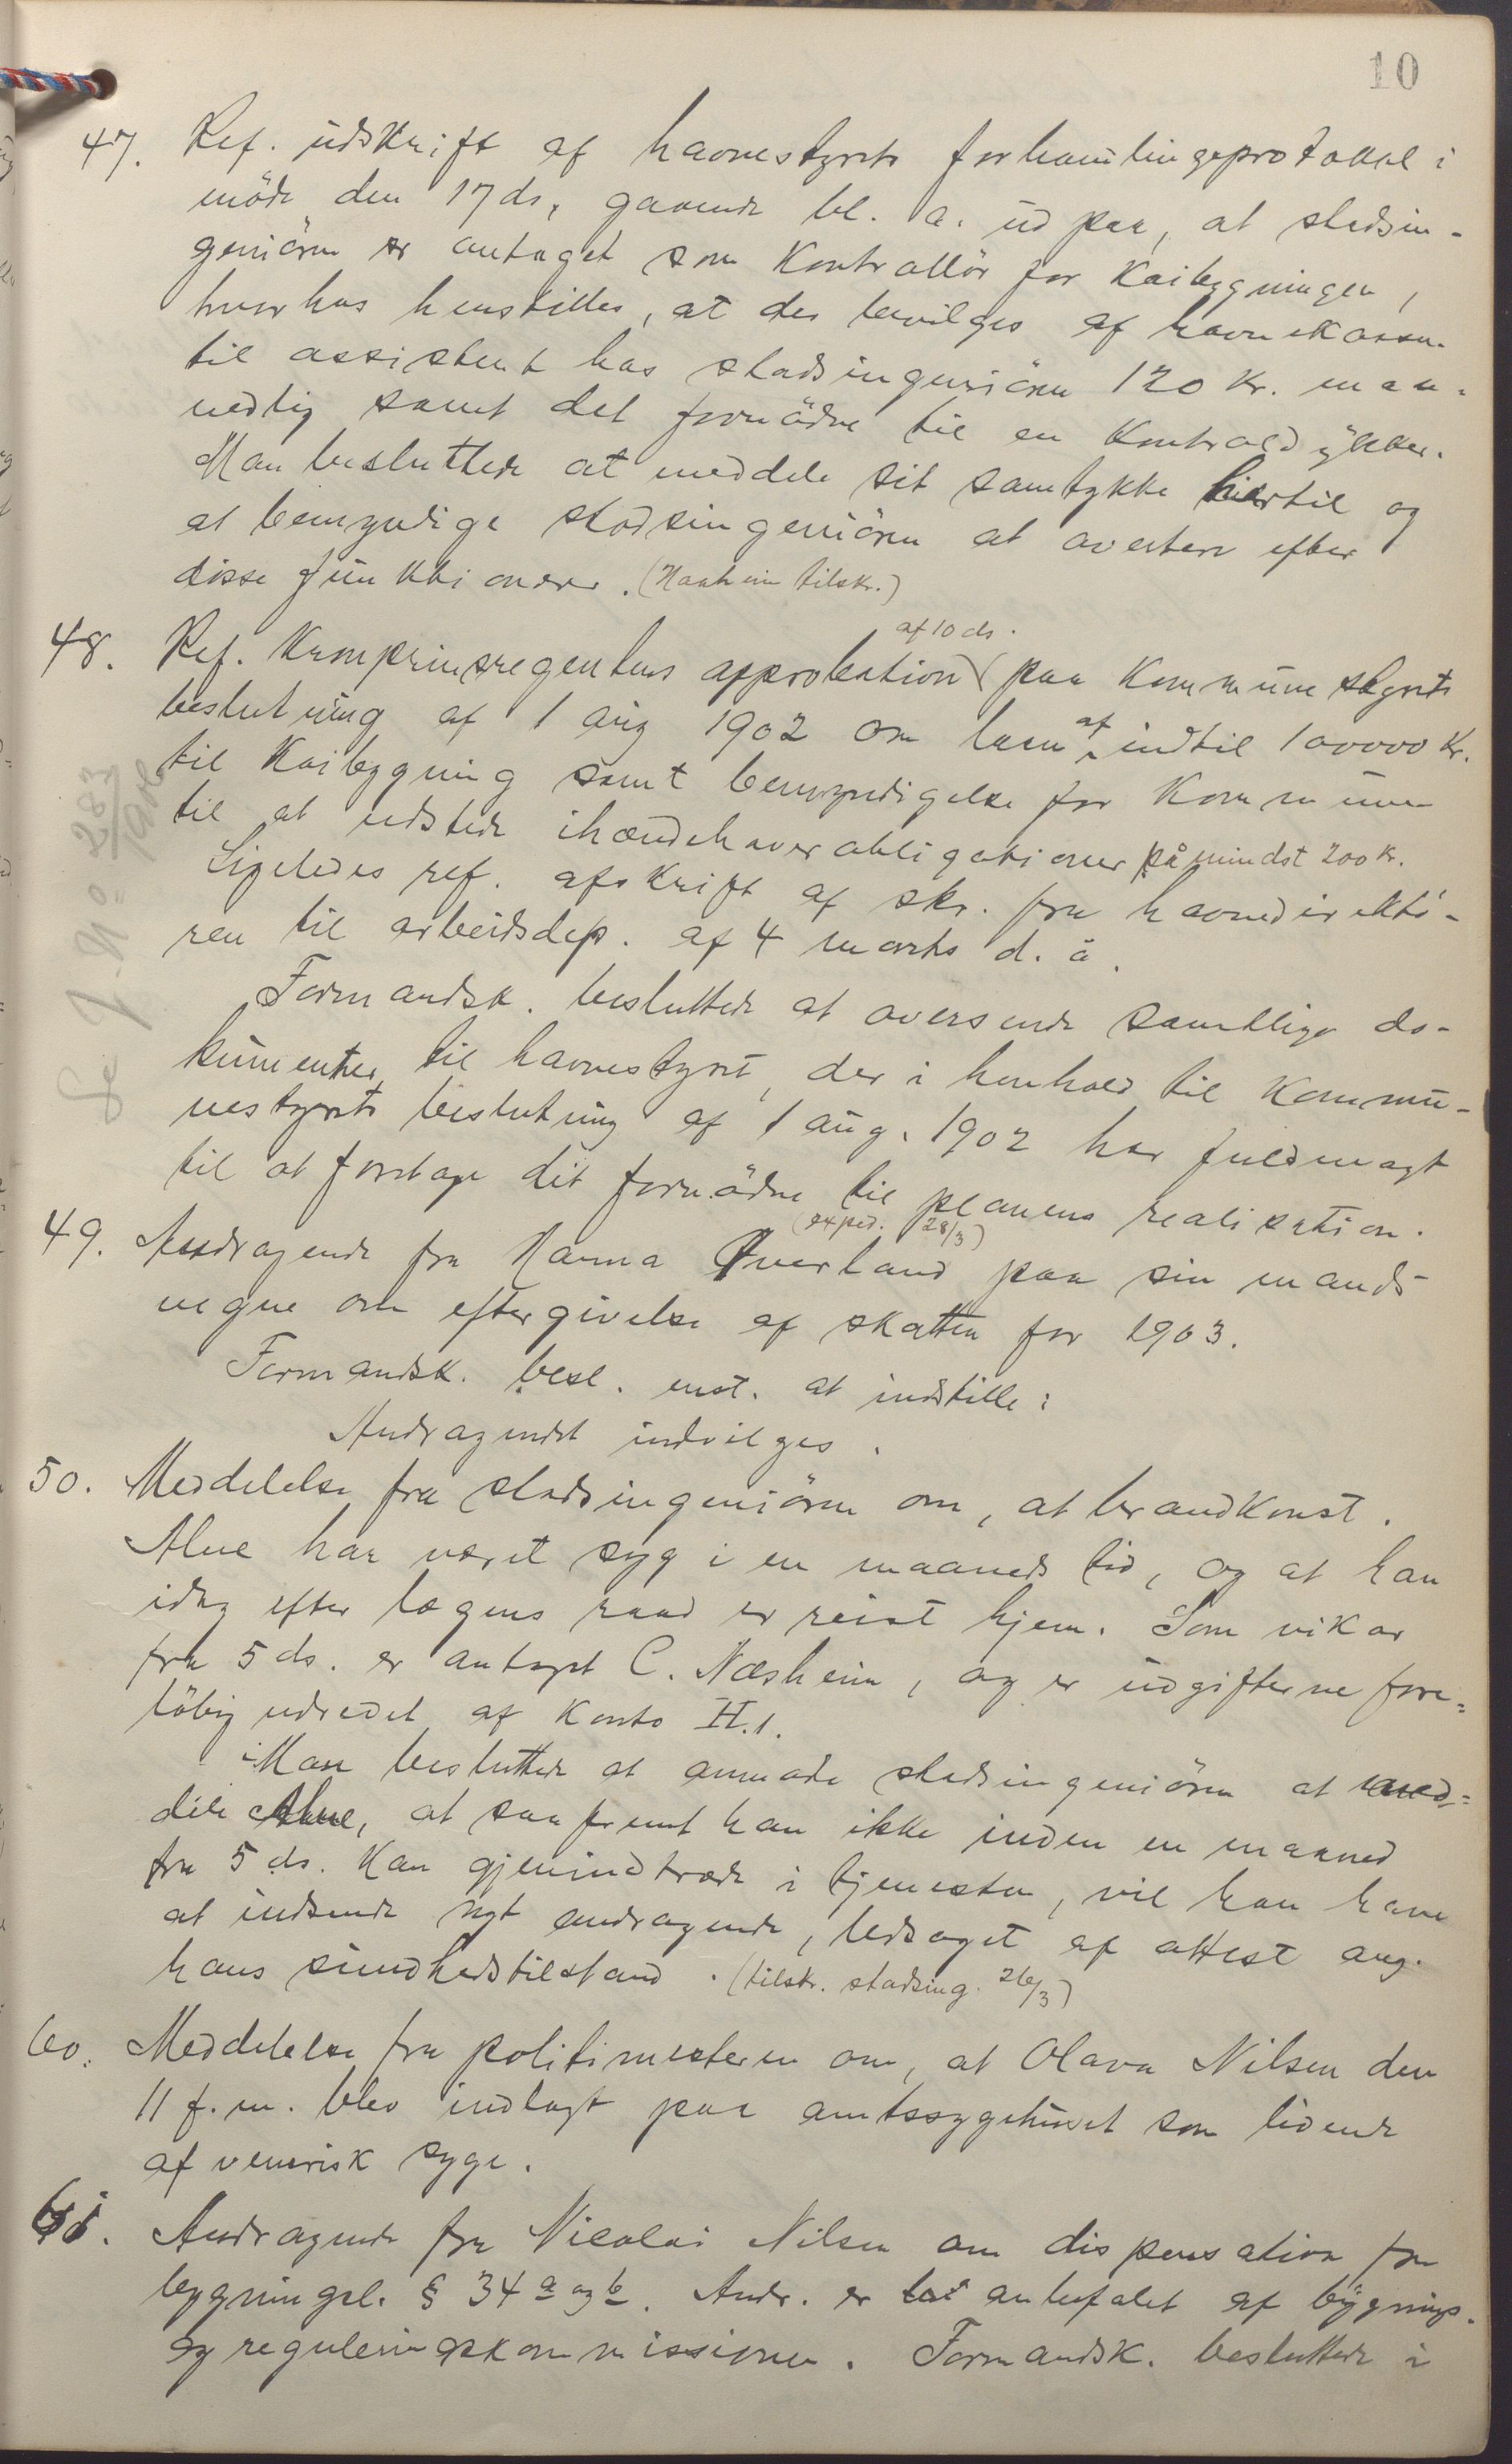 10
47. Ref. udskrift af havnestyrets forhandlingsprotokol i
möde den 17 ds, gaaende bl. a. ud paa, at stadsin-
geniören er antaget som kontrollör for kaibygningen,
hvorhos henstilles, at der bevilges af havnekassen
til assistent hos stadsingeniören 120 kr. maa-
nedlig samt det fornödne til en kontroldykker.
Man besluttede at meddele sit samtykke hertil og
at bemyndige stadsingeniören at avertere efter
disse funktionærer. (Haaheim tilskr.)
48. Ref. Kronprinsregentens approbation af 10 ds. paa kommunestyrets
beslutning af 1 aug 1902 om laan af indtil 100000 kr.
til kaibygning samt bemyndigelse for kommunen
til at udstede ihændehaverobligationer på mindst 200 kr.
Ligeledes ref. afskrift af skr. fra havnedirektö-
ren til arbeidsdep. af 4 marts d. å.
Se J. No. 283/1902
Formandsk. besluttede at oversende samtlige do-
kumenter til havnestyret, der i henhold til kommu-
nestyrets beslutning af 1 aug. 1902 har fuldmagt
til at foretage det fornödne til planens realisation.
(exped. 28/3)
49. Andragende fra Hanna Øverland paa sin mands
vegne om eftergivelse af skatten for 1903.
Formandsk. besl. enst. at indstille:
Andragendet indvilges.
50. Meddelelse fra stadsingeniören om, at brandkonst.
Alne har været syg i en maaneds tid, og at han
idag efter lægens raad er reist hjem. Som vikar
fra 5 ds. er antaget C. Næsheim, og er udgifterne fore-
löbig udredet af konto II.1.
Man besluttede at anmode stadsingeniören at med-
dele Alne, at saafremt han ikke inden en maaned
fra 5 ds. kan gjenindtræde i tjenesten, vil han have
at indsende nyt andragende, ledsaget af attest ang.
hans sundhedstilstand. (tilskr. stadsing. 26/3)
60. Meddelelse fra politimesteren om, at Olava Nilsen den
11 f. m. blev indlagt paa amtssygehuset som lidende
af venerisk syge.
61. Andragende fra Nicolai Nilsen om dispensation fra
bygningsl. § 34 a og b. Andr. er anbefalet af bygnings-
og reguleringskommissionen. Formandsk. besluttede i